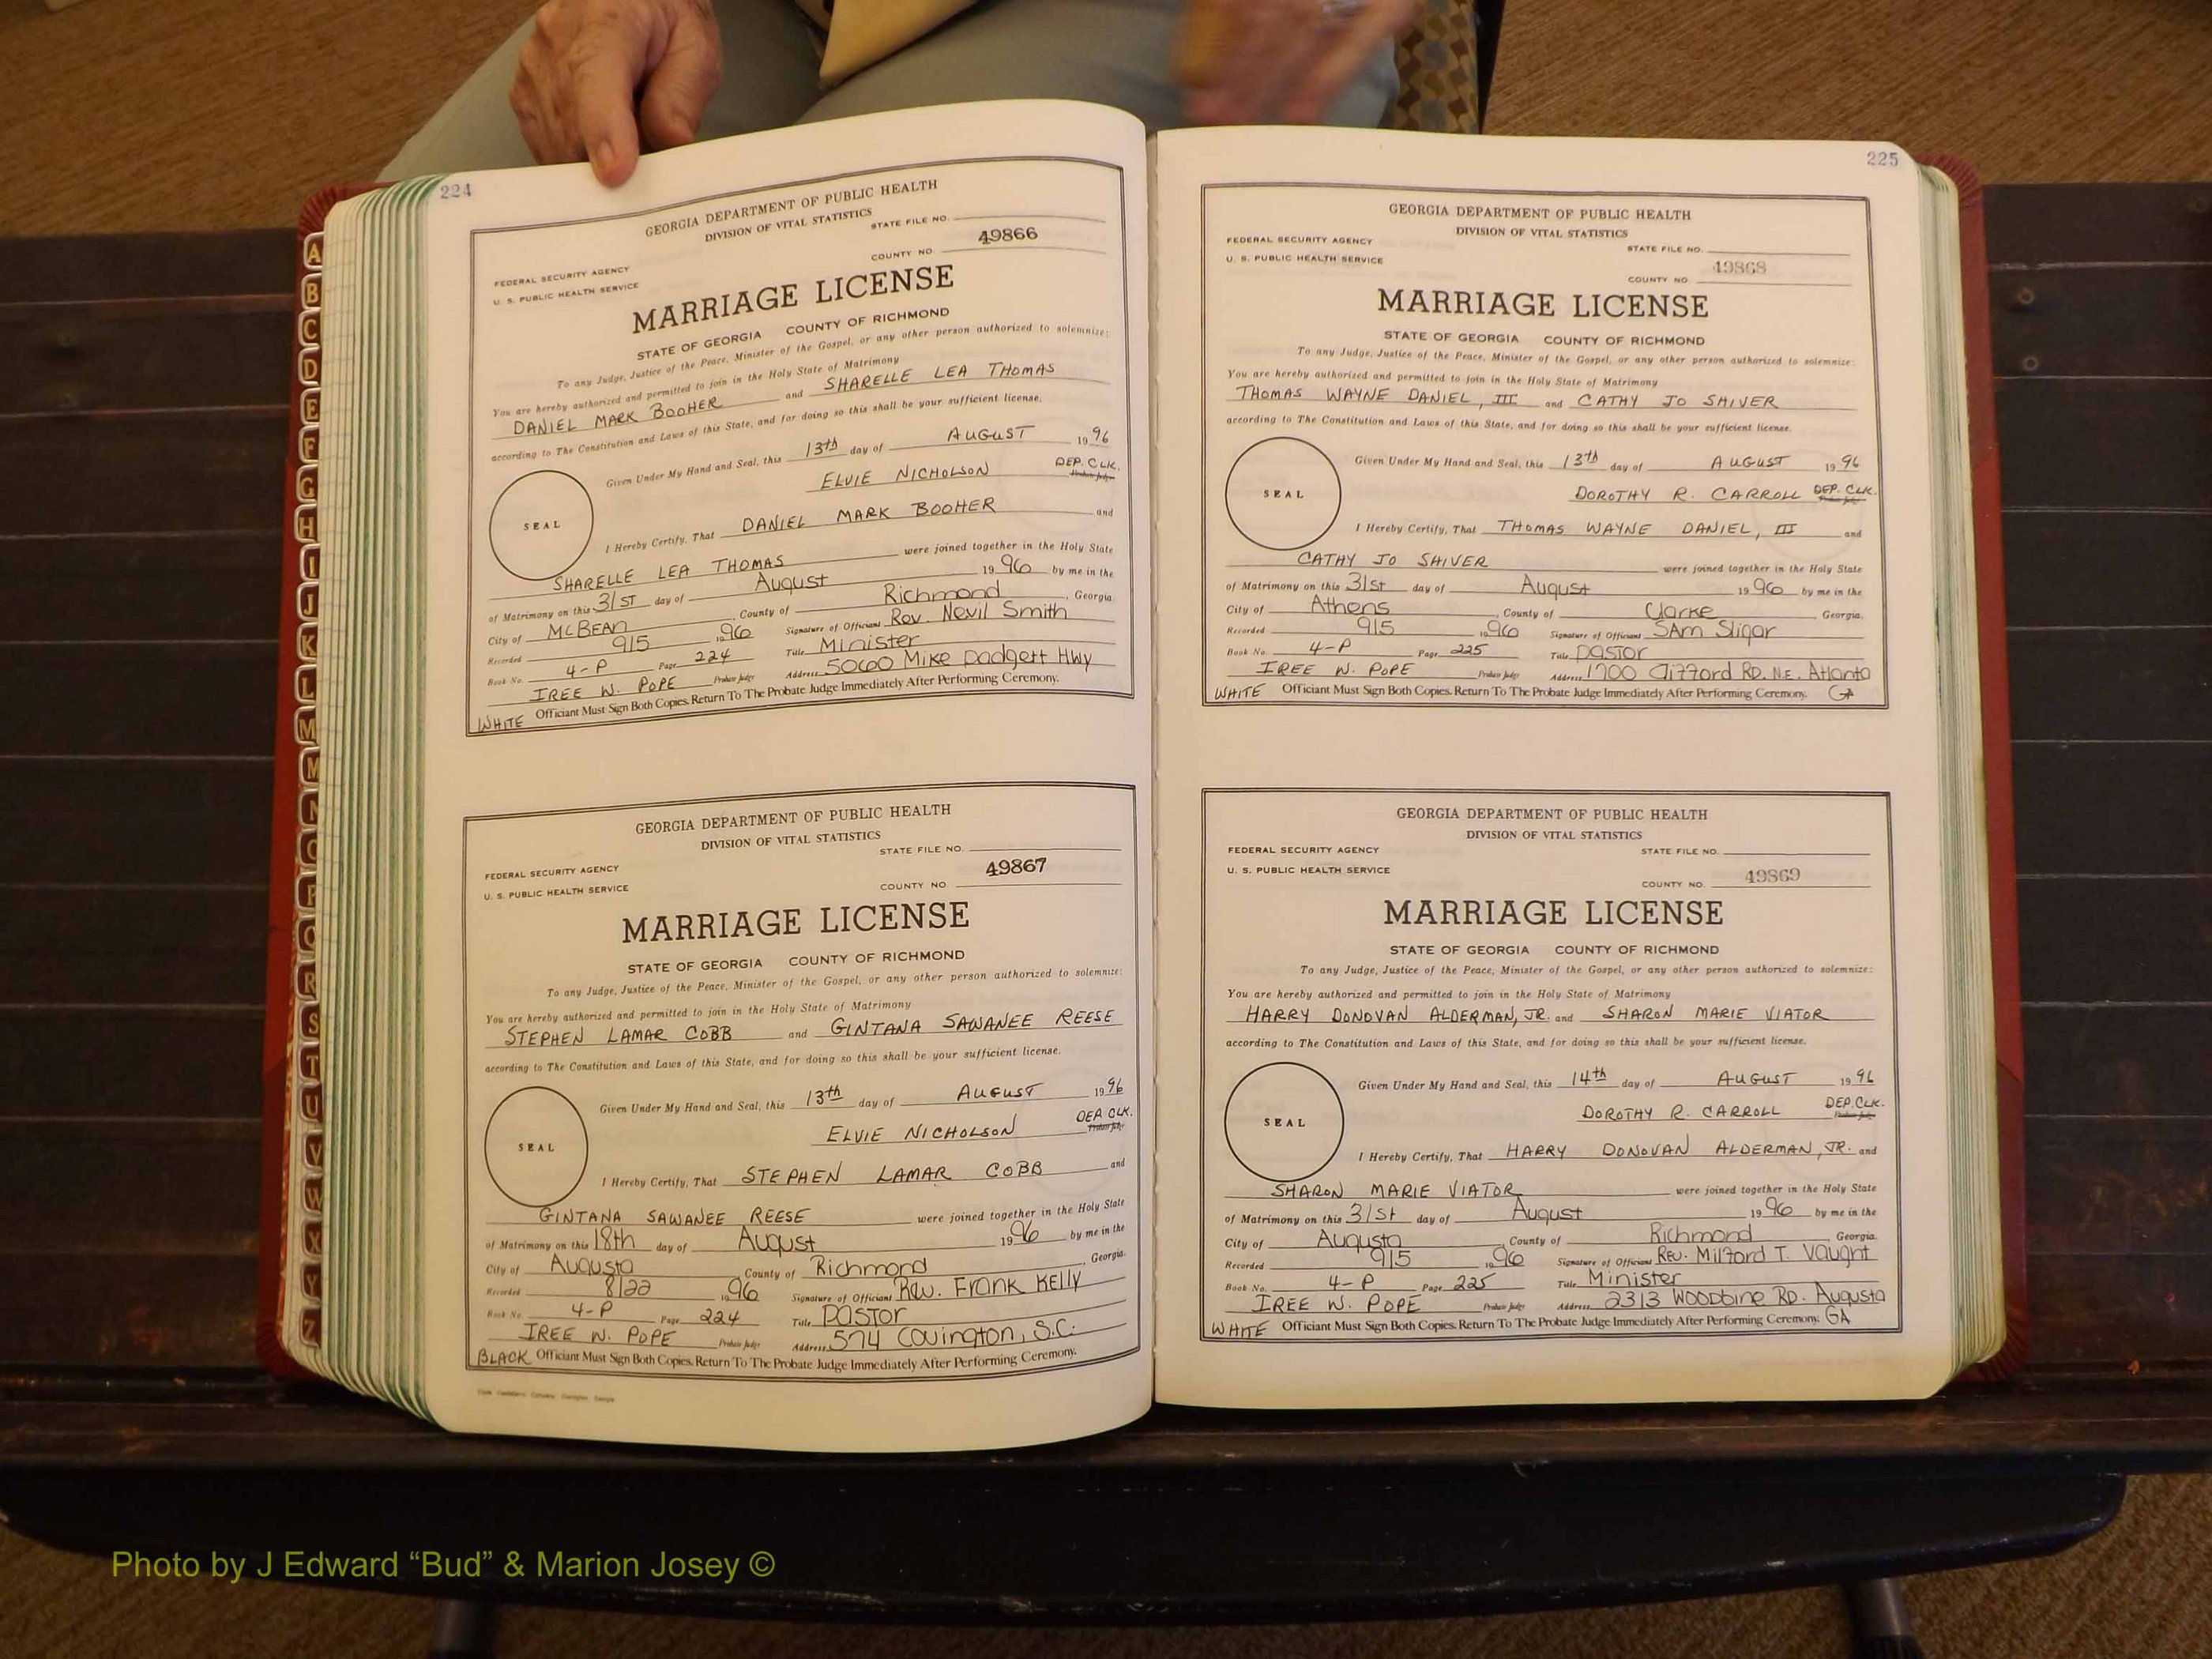 224
GEORGIA DEPARTMENT OF PUBLIC HEALTH
DIVISION OF VITAL STATISTICS
STATE FILE NO.
FEDERAL SECURITY AGENCY
49866
U. S. PUBLIC HEALTH SERVICE
COUNTY NO.
MARRIAGE LICENSE
STATE OF GEORGIA COUNTY OF RICHMOND
To any Judge, Justice of the Peace, Minister of the Gospel, or any other person authorized to solemnize:
You are hereby authorized and permitted to join in the Holy State of Matrimony
DANIEL MARK BOOHER and SHARELLE LEA THOMAS
according to The Constitution and Laws of this State, and for doing so this shall be your sufficient license.
Given Under My Hand and Seal, this 13th day of AUGUST 19 96
ELVIE NICHOLSON DEP. CLK.
Probate Judge
SEAL
I Hereby Certify, That DANIEL MARK BOOHER and
SHARELLE LEA THOMAS were joined together in the Holy State
of Matrimony on this 31ST day of August 19 96 by me in the
City of McBEAN, County of Richmond, Georgia.
Recorded 9/5 1996 Signature of Officiant Rev. Nevil Smith
Book No. 4-P Page 224 Title Minister
IREE W. POPE Probate Judge Address 5060 Mike Padgett Hwy
WHITE Officiant Must Sign Both Copies. Return To The Probate Judge Immediately After Performing Ceremony.
GEORGIA DEPARTMENT OF PUBLIC HEALTH
DIVISION OF VITAL STATISTICS
STATE FILE NO.
FEDERAL SECURITY AGENCY
49867
U. S. PUBLIC HEALTH SERVICE
COUNTY NO.
MARRIAGE LICENSE
STATE OF GEORGIA COUNTY OF RICHMOND
To any Judge, Justice of the Peace, Minister of the Gospel, or any other person authorized to solemnize:
You are hereby authorized and permitted to join in the Holy State of Matrimony
STEPHEN LAMAR COBB and GINTANA SAWANEE REESE
according to The Constitution and Laws of this State, and for doing so this shall be your sufficient license.
Given Under My Hand and Seal, this 13th day of AUGUST 19 96
ELVIE NICHOLSON DEP. CLK.
Probate Judge
SEAL
I Hereby Certify, That STEPHEN LAMAR COBB and
GINTANA SAWANEE REESE were joined together in the Holy State
of Matrimony on this 18th day of August 19 96 by me in the
City of Augusta County of Richmond, Georgia.
Recorded 8/22 1996 Signature of Officiant Rev. Frank Kelly
Book No. 4-P Page 224 Title Pastor
IREE W. POPE Probate Judge Address 574 Covington, S.C.
BLACK Officiant Must Sign Both Copies. Return To The Probate Judge Immediately After Performing Ceremony.
225
GEORGIA DEPARTMENT OF PUBLIC HEALTH
DIVISION OF VITAL STATISTICS
FEDERAL SECURITY AGENCY
STATE FILE NO.
U. S. PUBLIC HEALTH SERVICE
49868
COUNTY NO.
MARRIAGE LICENSE
STATE OF GEORGIA COUNTY OF RICHMOND
To any Judge, Justice of the Peace, Minister of the Gospel, or any other person authorized to solemnize:
You are hereby authorized and permitted to join in the Holy State of Matrimony
THOMAS WAYNE DANIEL, III and CATHY JO SHIVER
according to The Constitution and Laws of this State, and for doing so this shall be your sufficient license.
Given Under My Hand and Seal, this 13th day of AUGUST 19 96
DOROTHY R. CARROLL DEP. CLK.
Probate Judge
SEAL
I Hereby Certify, That THOMAS WAYNE DANIEL, III and
CATHY JO SHIVER were joined together in the Holy State
of Matrimony on this 31st day of August 19 96 by me in the
City of Athens, County of Clarke, Georgia.
Recorded 9/5 1996 Signature of Officiant Sam Sligar
Book No. 4-P Page 225 Title Pastor
IREE W. POPE Probate Judge Address 1700 Clifford RD. N.E. Atlanta
WHITE Officiant Must Sign Both Copies. Return To The Probate Judge Immediately After Performing Ceremony. GA
GEORGIA DEPARTMENT OF PUBLIC HEALTH
DIVISION OF VITAL STATISTICS
FEDERAL SECURITY AGENCY
STATE FILE NO.
U. S. PUBLIC HEALTH SERVICE
49869
COUNTY NO.
MARRIAGE LICENSE
STATE OF GEORGIA COUNTY OF RICHMOND
To any Judge, Justice of the Peace, Minister of the Gospel, or any other person authorized to solemnize:
You are hereby authorized and permitted to join in the Holy State of Matrimony
HARRY DONOVAN ALDERMAN, JR. and SHARON MARIE VIATOR
according to The Constitution and Laws of this State, and for doing so this shall be your sufficient license.
Given Under My Hand and Seal, this 14th day of AUGUST 19 96
DOROTHY R. CARROLL DEP. CLK.
Probate Judge
SEAL
I Hereby Certify, That HARRY DONOVAN ALDERMAN, JR. and
SHARON MARIE VIATOR were joined together in the Holy State
of Matrimony on this 31st day of August 19 96 by me in the
City of Augusta, County of Richmond Georgia.
Recorded 9/5 1996 Signature of Officiant Rev. Milford T. Vaught
Book No. 4-P Page 225 Title Minister
IREE W. POPE Probate Judge Address 2313 Woodbine RD. Augusta
WHITE Officiant Must Sign Both Copies. Return To The Probate Judge Immediately After Performing Ceremony. GA
A
B
C
D
E
F
G
H
I
J
K
L
M
M
N
O
P
Q
R
S
T
U
V
W
X
Y
Z
Photo by J Edward “Bud” & Marion Josey ©